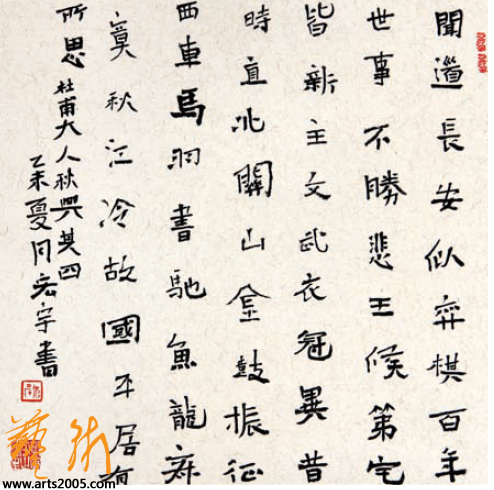 聞道長安似弈棋百年
世事不勝悲王候第宅
皆新主文武衣冠異昔
時直北關山金鼓振征
西車馬羽書馳魚龍寂
寞秋江冷故國平居有
所思 杜甫大人秋興其四
乙未夏周宏宇書
藝術
www.arts2005.com